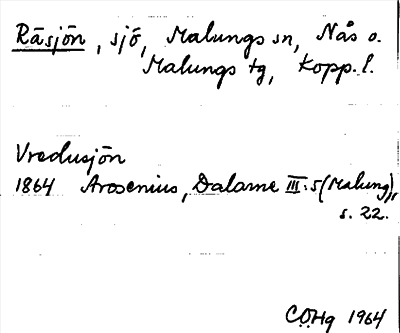 Räsjön, sjö, Malungs sn, Nås o.
Malungs tg, Kopp. l.
Vredusjön
1864 Arosenius, Dalarne III:5 (Malung),
s. 22.
COHg 1964